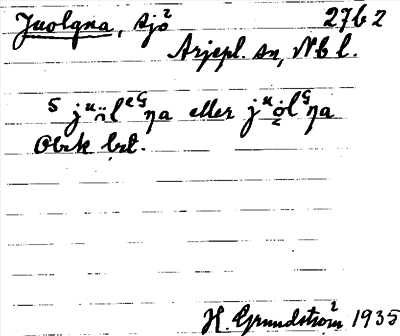 Juolgna, sjö 2 27b2
Arjepl. sn, Nbl.
5 jᵘöl ᵉᶝŋa eller jᵘö̭lᶝŋa
Obek
H. Grundström 1935